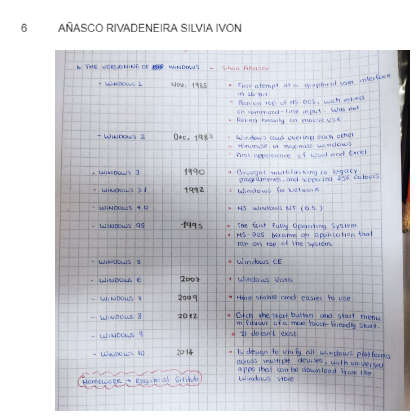 6 AÑASCO RIVADENEIRA SILVIA IVON
THE VERSIONING OF WINDOWS - Silvia Añasco
- WINDOWS 1 Nov. 1985 • First attempt at a graphical user interface
in 16-bit
• Ran on top of MS-DOS, which relied
on command-line input.
• Relied heavily on mouse use.
- WINDOWS 2 Dec. 1987 • Windows could overlap each other
• Minimise or maximise windows
• First appearance of Word and Excel
- WINDOWS 3 1990 • Brought multitasking to legacy
programmes, and supported 256 colours
- WINDOWS 3.1 1992 • Windows for Network
- WINDOWS 4.0 • MS Windows NT (O.S.)
- WINDOWS 95 1995 • The first fully Operating System
• MS-DOS became an application that
ran on top of the system
- WINDOWS 5 • Windows CE
- WINDOWS 6 2007 • Windows Vista
- WINDOWS 7 2009 • More stable and easier to use
- WINDOWS 8 2012 • Ditch the start button and start menu
in favour of a more touch-friendly start.
- WINDOWS 9 • It doesn't exist
- WINDOWS 10 2014 • Is design to unify all windows platforms
across multiple devices, with universal
apps that can be download from the
Windows store
HOMEWORK →